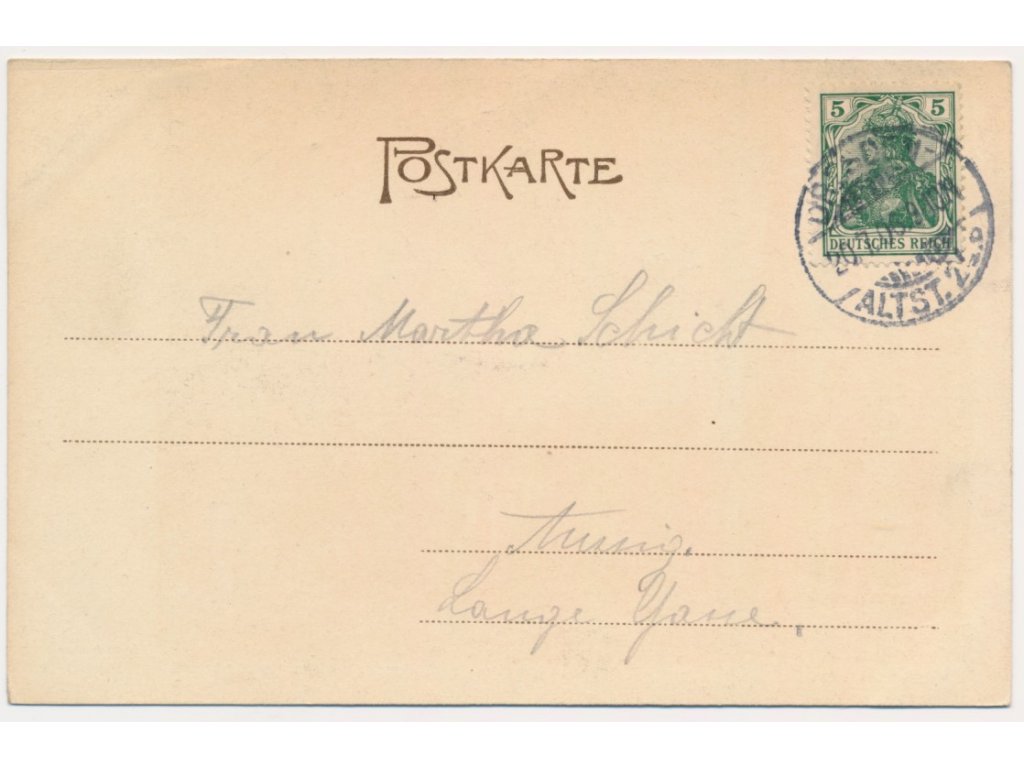 POSTKARTE
5 5
DEUTSCHES REICH
ALTST. 2
Frau Martha Schicht
Aussig.
Lange Gasse.